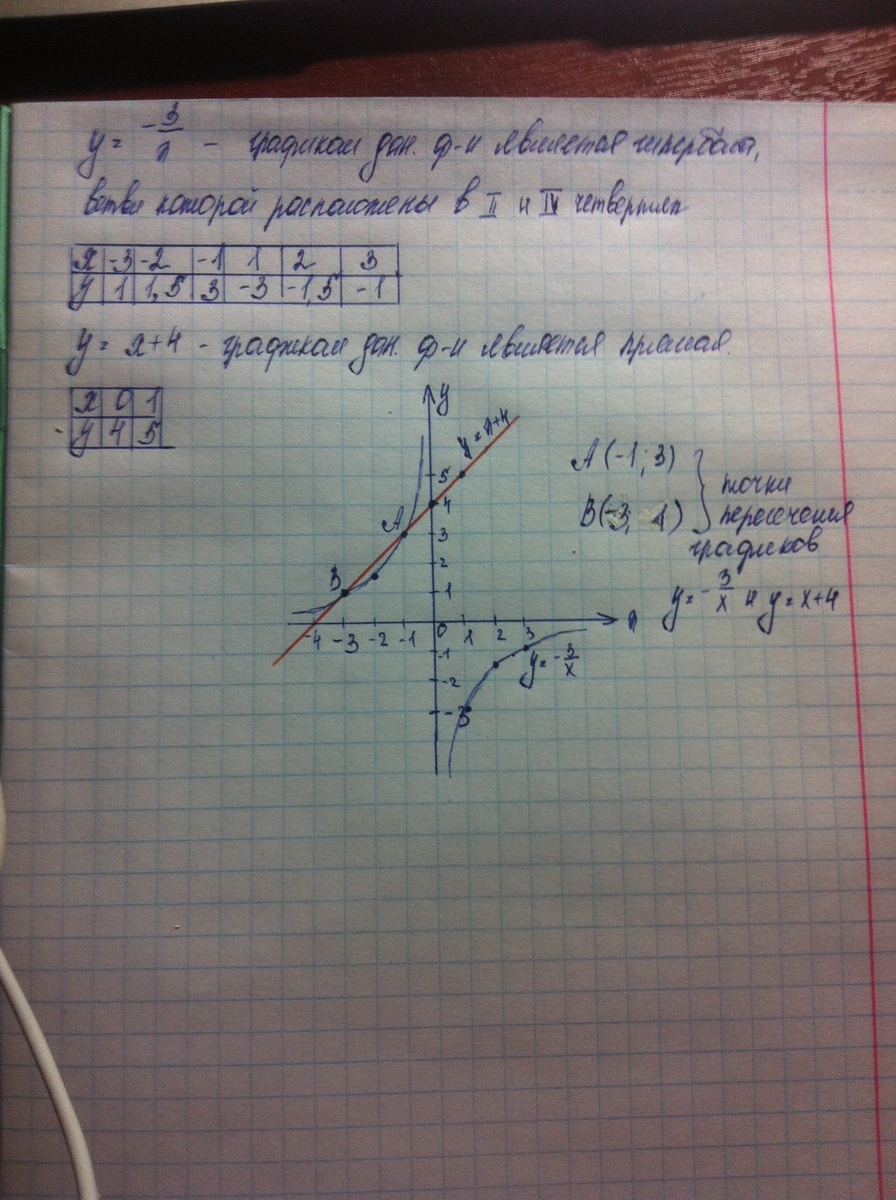 y = -3/x – графиком дан. ф-и является гипербола,
ветви которой расположены в II и IV четвертях
x -3 -2 -1 1 2 3
y 1 1,5 3 -3 -1,5 -1
y = x+4 - графиком дан. ф-и является прямая.
x 0 1
y 4 5
y
y = x+4
5
4
A
3
2
B
1
-4 -3 -2 -1 0 1 2 3 x
-1
-2
-3
y = -3/x
A (-1; 3)
B (-3; 1)
точки
пересечения
графиков
y = -3/x и y = x+4